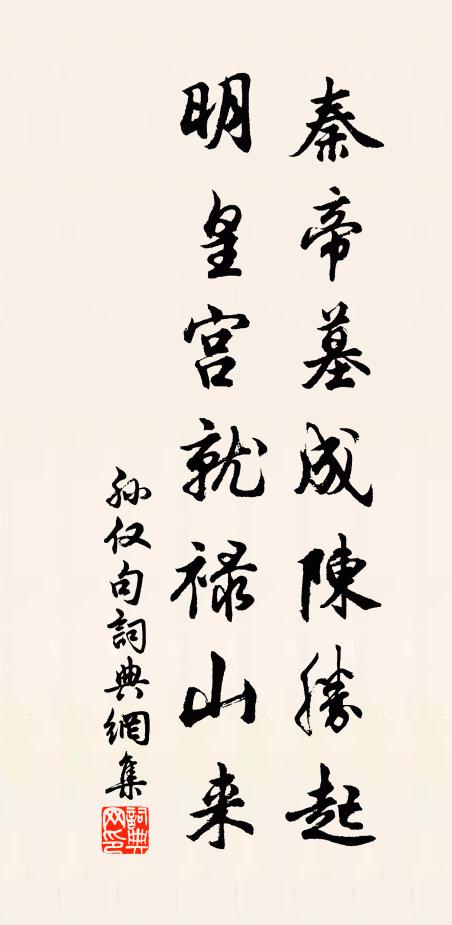 秦帝墓成陳勝起
明皇宫就禄山来
孙仅句詞典網集
詞典網印